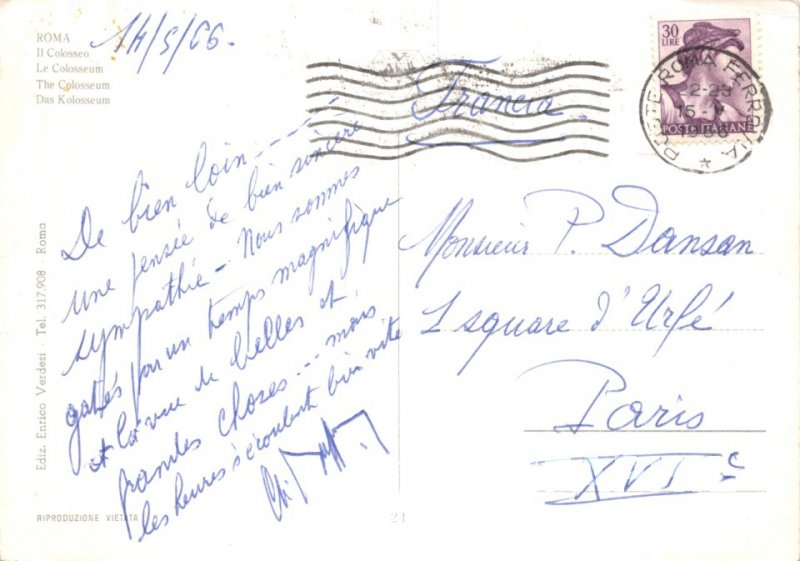 ROMA
Il Colosseo
Le Colosseum
The Colosseum
Das Kolosseum
14/5/66.
30
LIRE
POSTE ITALIANE
POSTE ROMA FERROVIA
22-23
15-
Francia
De bien loin - - - -
une pensée de bien sincère
sympathie - Nous sommes
gatés par un temps magnifique
et la vue de belles et
grandes choses... mais
les heures s'écoulent bien vite
Monsieur P. Dansan
1 square d'Urfé
Paris
XVIe
Ediz. Enrico Verdesi - Tel. 317.908 - Roma
RIPRODUZIONE VIETATA
21